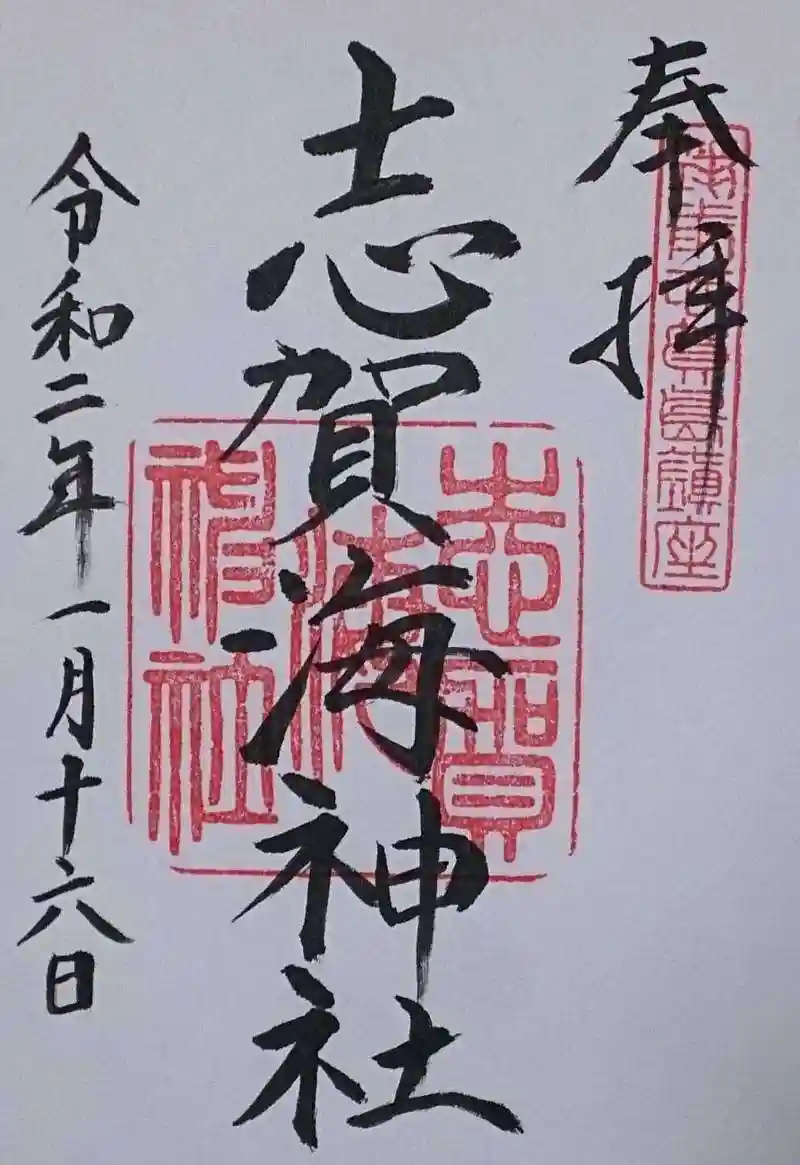 奉拝
志賀海神社
志賀海神社
令和二年一月十六日